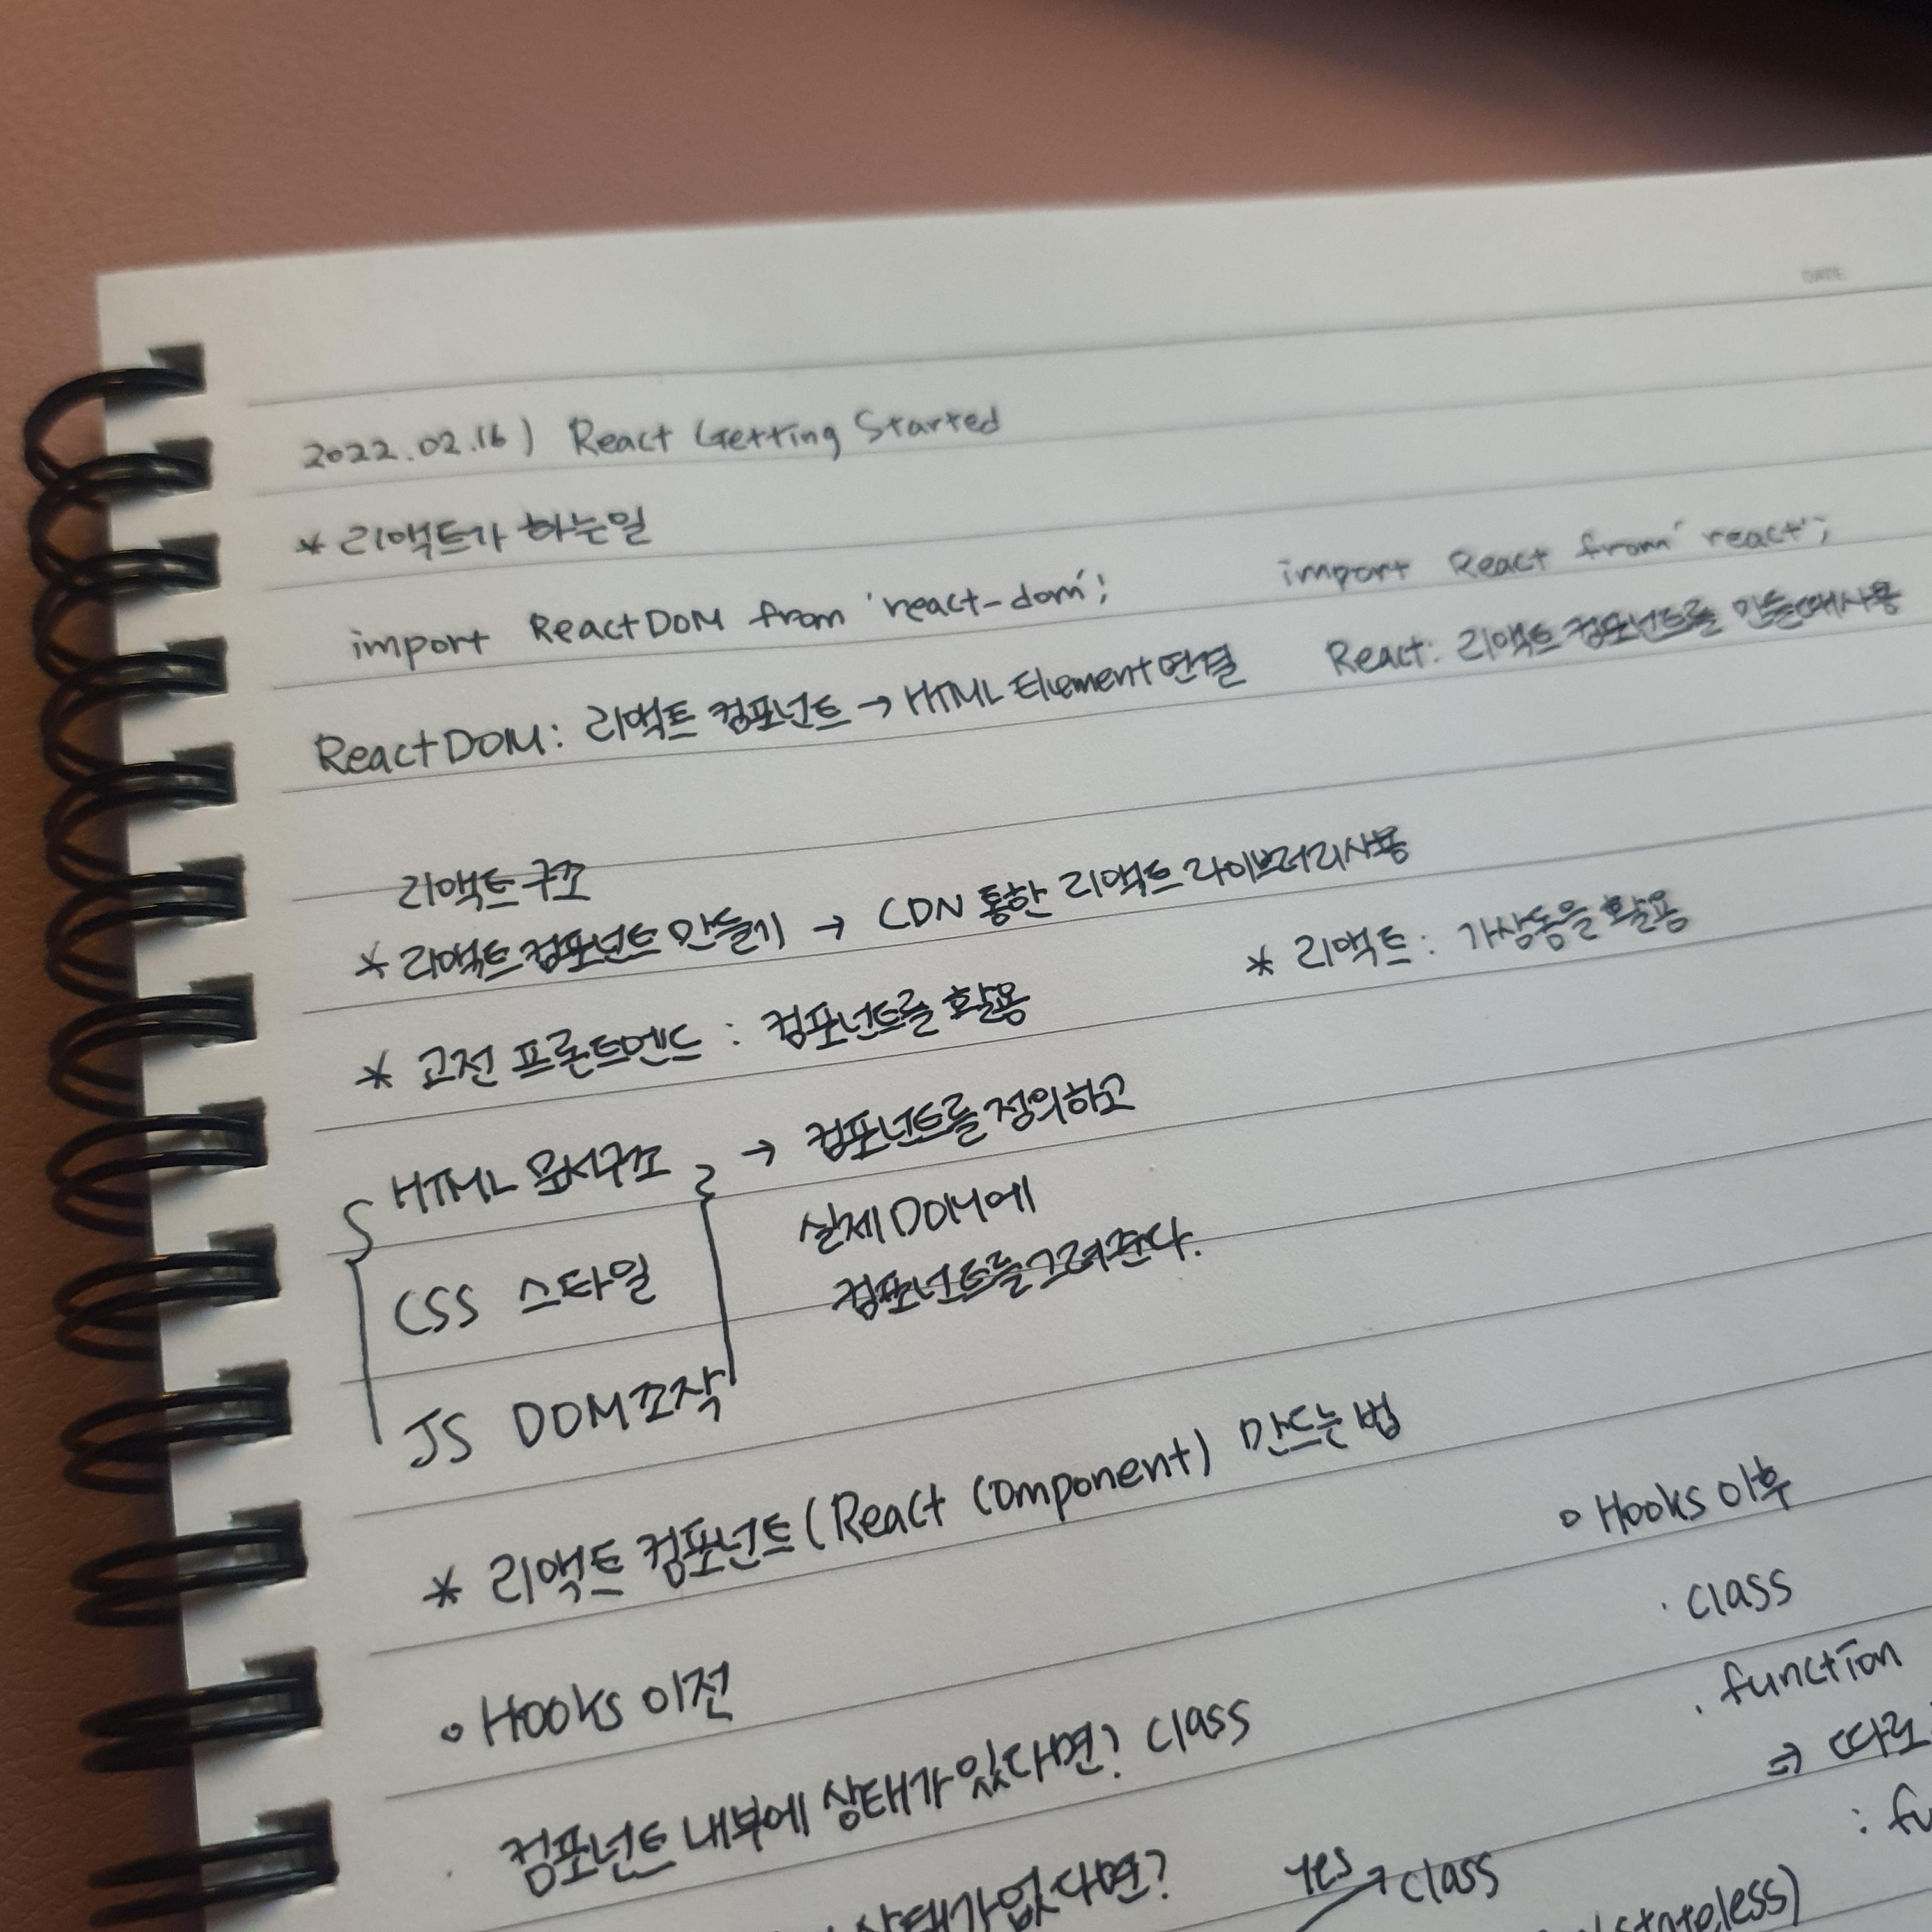 DATE
2022.02.16) React Getting Started
* 리액트가 하는일
import ReactDOM from 'react-dom'; import React from 'react';
ReactDOM: 리액트 컴포넌트 → HTML Element 연결 React: 리액트 컴포넌트를 만들때 사용
리액트 구조
* 리액트 컴포넌트 만들기 → CDN 통한 리액트 라이브러리 사용
* 고전 프론트엔드 : 컴포넌트를 활용 * 리액트 : 가상돔을 활용
HTML 문서구조 → 컴포넌트를 정의하고
CSS 스타일 실제 DOM에
컴포넌트를 그려준다.
JS DOM조작
* 리액트 컴포넌트 (React Component) 만드는 법
∘ Hooks 이전 ∘ Hooks 이후
· class
컴포넌트 내부에 상태가 있다면? class · function
⇒ 따로
상태가 없다면? yes → class : fu
stateless)